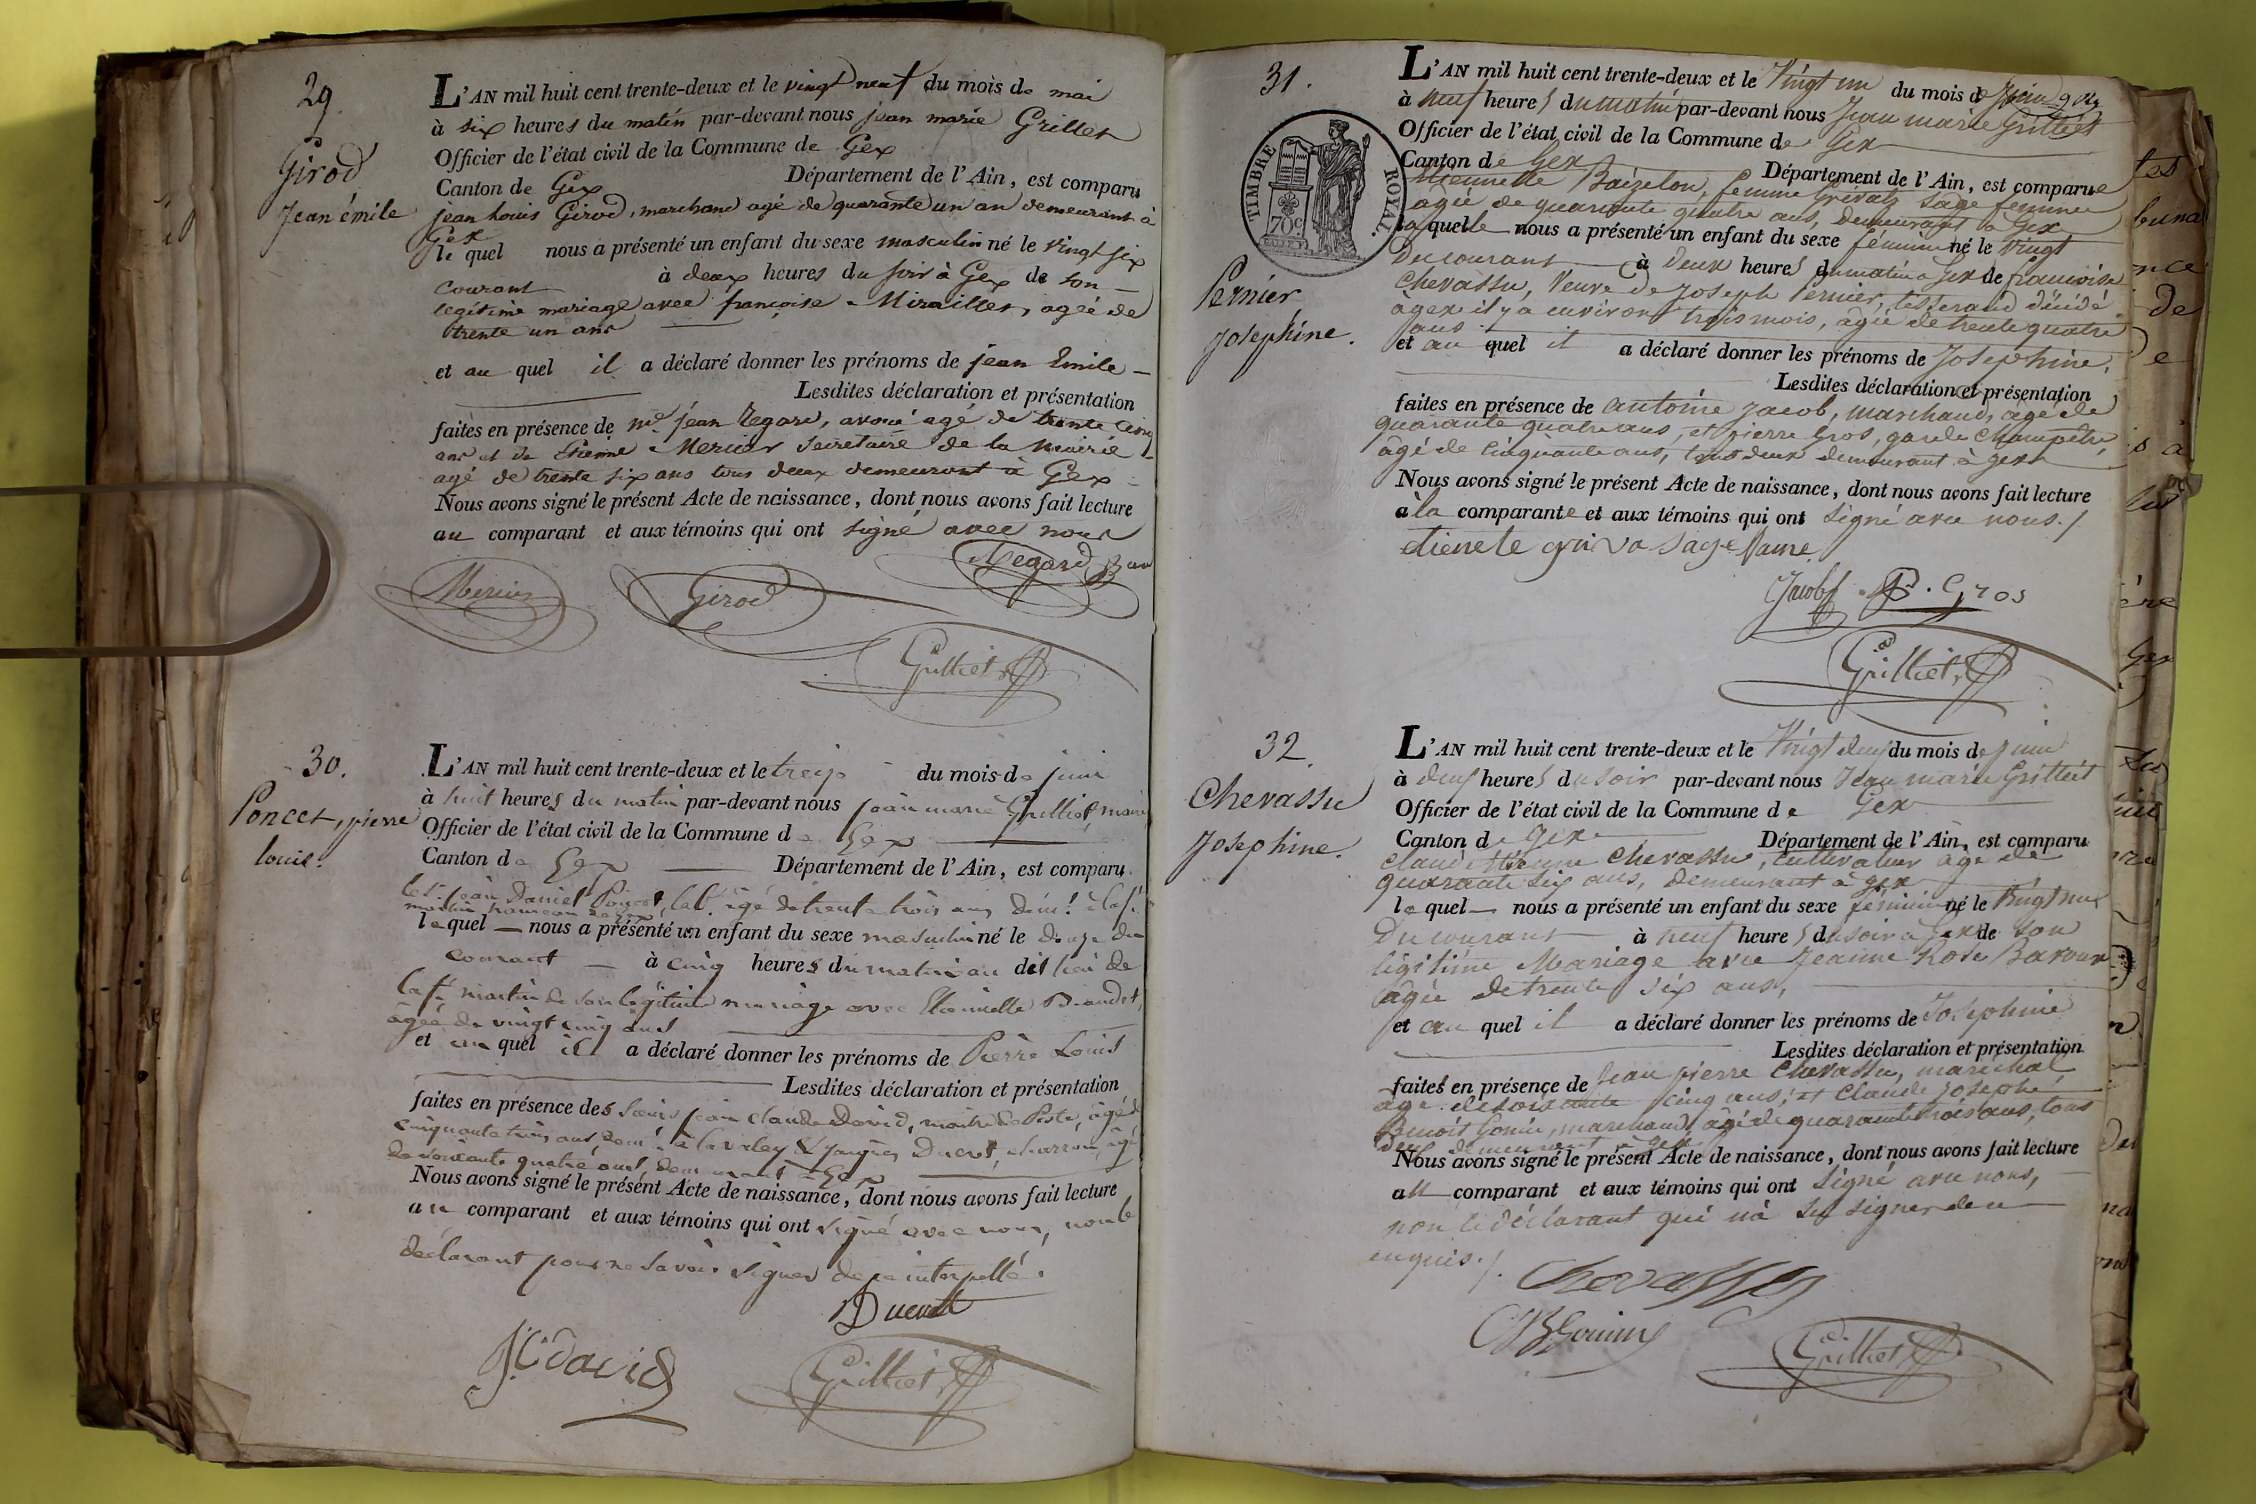 29.
Girod
Jean émile
L'AN mil huit cent trente-deux et le vingt neuf du mois de mai
à six heures du matin par-devant nous jean marie Grilliet
Officier de l'état civil de la Commune de Gex
Canton de Gex Département de l'Ain, est comparu
jean Louis Girod, marchand agé de quarante un an demeurant à
Gex
le quel nous a présenté un enfant du sexe masculin né le vingt six
courant à deux heures du soir à Gex de son
legitime mariage avec françoise Miraillet, agée de
trente un ans
et au quel il a déclaré donner les prénoms de jean Emile
Lesdites déclaration et présentation
faites en présence de me jean Regard, avoué agé de trente cinq
ans et de Etienne Mercier Secretaire de la Mairie
agé de trente six ans tous deux demeurant à Gex
Nous avons signé le présent Acte de naissance, dont nous avons fait lecture
au comparant et aux témoins qui ont signé avec nous
Regard
Mercier Girod
Grilliet
30.
Poncet, pierre
louis.
L'AN mil huit cent trente-deux et le treize du mois de juin
à huit heures du matin par-devant nous jean marie Grilliet, maire
Officier de l'état civil de la Commune de Gex
Canton de Gex Département de l'Ain, est comparu
le Sr. jean Daniel Poncet, lab. agé de trente trois ans dem.t à la f.
martin
le quel nous a présenté un enfant du sexe masculin né le douze du
courant à cinq heures du matin au dit lieu de
la f. martin de son légitime mariage avec Etiennette Beaudet,
agée de vingt cinq ans
et au quel il a déclaré donner les prénoms de Pierre Louis
Lesdites déclaration et présentation
faites en présence des Sieurs jean Claude David, maitre de Poste, âgé de
cinquante trois ans, dem.t à Cavaley & jacques Ducret, charron, âgé
de soixante quatre ans, demeurant à Gex
Nous avons signé le présent Acte de naissance, dont nous avons fait lecture
au comparant et aux témoins qui ont signé avec nous, non le
déclarant pour ne savoir signer de ce interpellé.
Ducret
JC david
Grilliet
31.
TIMBRE ROYAL.
70c
Pernier
Josephine.
L'AN mil huit cent trente-deux et le Vingt un du mois de Juin
à neuf heures du matin par-devant nous Jean marie Grilliet
Officier de l'état civil de la Commune de Gex
Canton de Gex Département de l'Ain, est comparue
Etiennette Baizelon, femme Grivat, Sage femme
agée de quarante quatre ans, demeurant à Gex
la quelle nous a présenté un enfant du sexe féminin né le vingt
Du courant à deux heures du matin à Gex de françoise
Chevassu, Veuve de Joseph Pernier, tisserand décédé
à gex il y a environ trois mois, âgée de trente quatre
ans
et au quel il a déclaré donner les prénoms de Josephine.
Lesdites déclaration et présentation
faites en présence de antoine Jacob, marchand, âgé de
quarante quatre ans, et pierre Gros, garde Champêtre,
âgé de Cinquante ans, tous deux demeurant à gex
Nous avons signé le présent Acte de naissance, dont nous avons fait lecture
à la comparante et aux témoins qui ont Signé avec nous./
etienete griva Sage fame
Jacob P. Gros
Grilliet
32.
Chevassu
Josephine.
L'AN mil huit cent trente-deux et le Vingt deux du mois de juin
à deux heures du soir par-devant nous Jean marie Grilliet
Officier de l'état civil de la Commune de Gex
Canton de Gex Département de l'Ain, est comparu
Claude Etienne Chevassu, Cultivateur âgé de
quarante six ans, demeurant à gex
le quel nous a présenté un enfant du sexe féminin né le Vingt un
Du courant à neuf heures du soir à Gex de son
légitime Mariage avec Jeanne Rose Baroux
âgée de trente six ans,
et au quel il a déclaré donner les prénoms de Josephine
Lesdites déclaration et présentation
faites en présence de Jean pierre Chevassu, maréchal
âgé de soixante cinq ans, et Claude Joseph
Benoit Gouin, marchand, âgé de quarante trois ans, tous
deux demeurant à gex
Nous avons signé le présent Acte de naissance, dont nous avons fait lecture
au comparant et aux témoins qui ont Signé avec nous,
non le déclarant qui n'a su signer de ce
enquis./.
Chevassu
CJBGouin
Grilliet